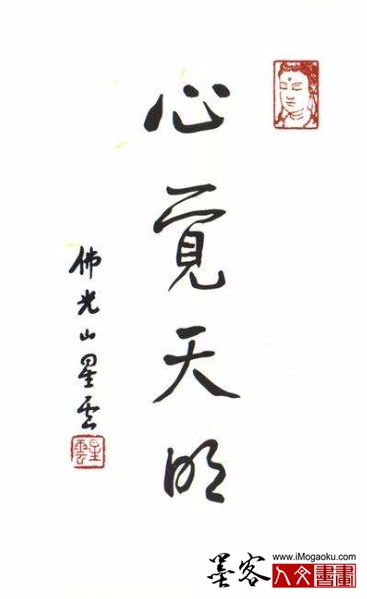 心覺天明
佛光山星雲
星雲
墨客
www.iMogaoku.com
人文書畫